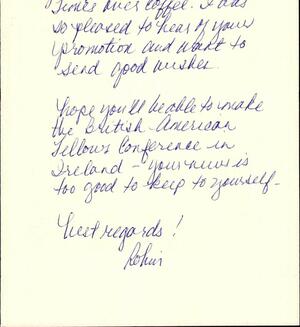 Times over coffee. It was
so pleased to hear of your
promotion and want to
send good wishes.
hope you'll be able to make
the British-American
Fellows Conference in
Ireland - your news is
too good to keep to yourself-
Best regards!
Robin